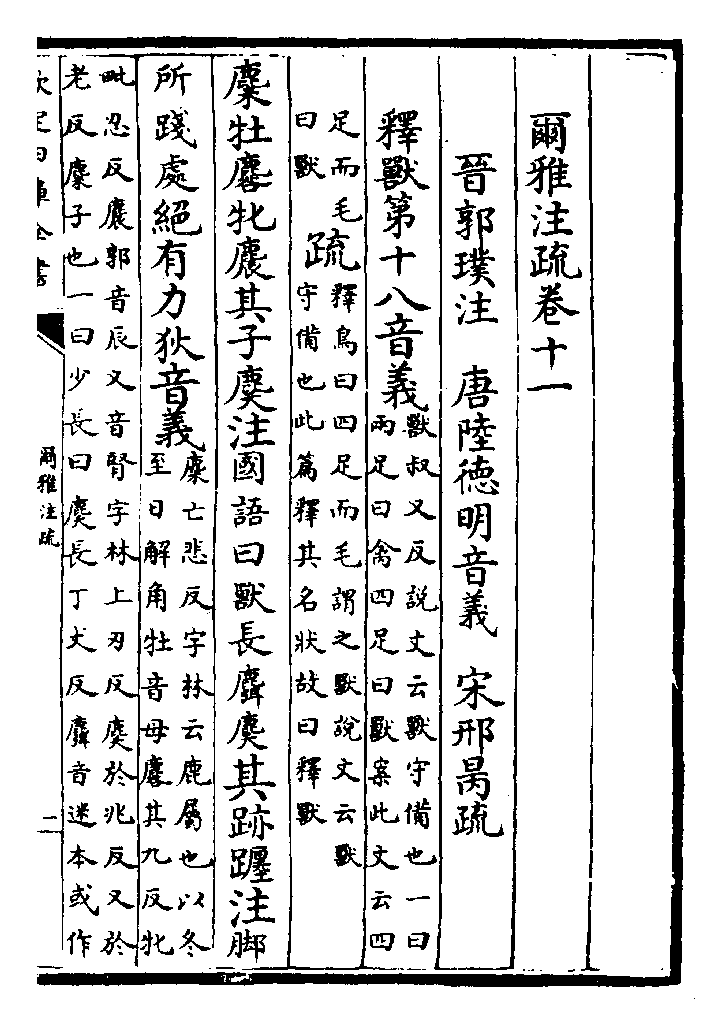 爾雅注疏卷十一
晉郭璞注 唐陸德明音義 宋邢昺疏
釋獸第十八音義
獸叔又反說文云獸守備也一曰
兩足曰禽四足曰獸案此文云四
足而毛
曰獸
疏
釋鳥曰四足而毛謂之獸說文云獸
守備也此篇釋其名狀故曰釋獸
麋牡麔牝麎其子䴠注國語曰獸長麛䴠其跡躔注脚
所踐處絕有力狄音義
麋亡悲反字林云鹿屬也以冬
至日解角牡音母麔其九反牝
毗忍反麎郭音辰又音腎字林上刃反䴠於兆反又於
老反麋子也一曰少長曰䴠長丁丈反麛音迷本或作
欽定四庫全書
爾雅注疏